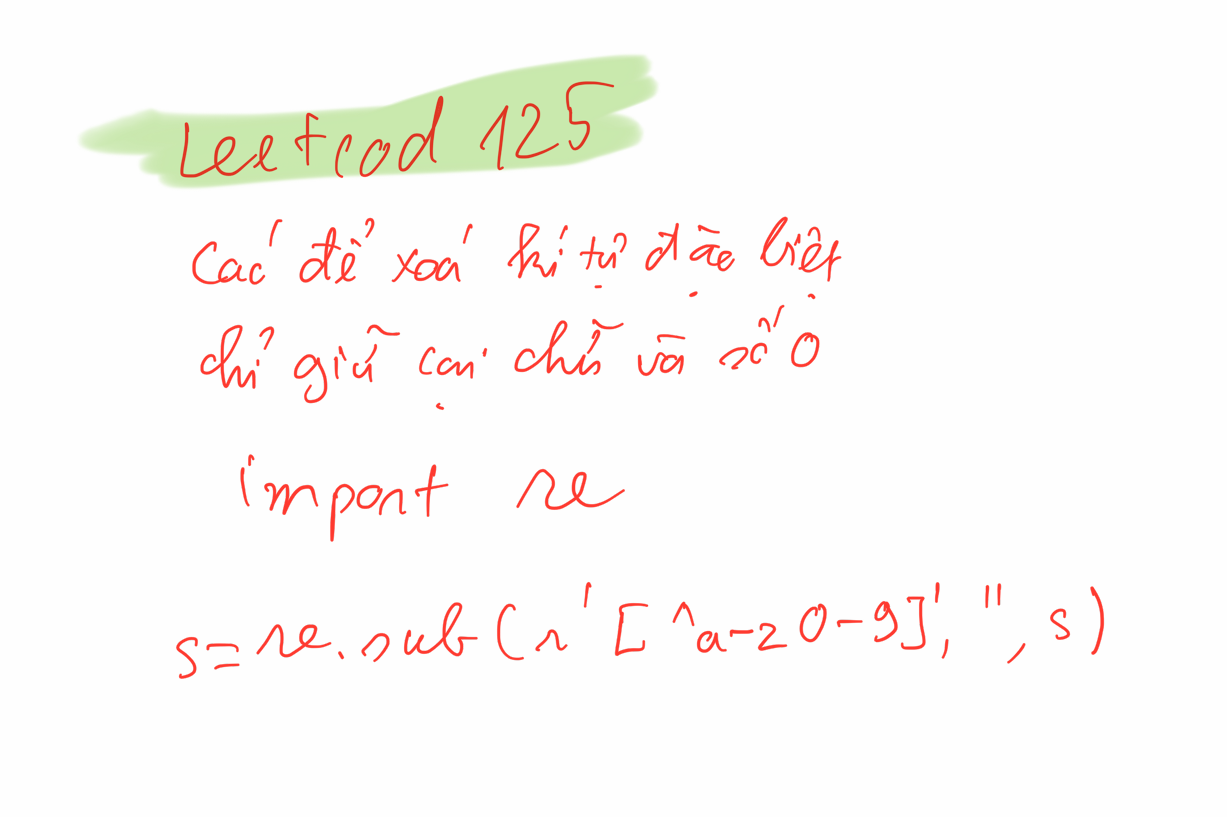 Leetcod 125
Các để xoá kí tự đặc biệt
chỉ giữ lại chữ và số 0
import re
s=re.sub(r'[^a-z0-9]','',s)